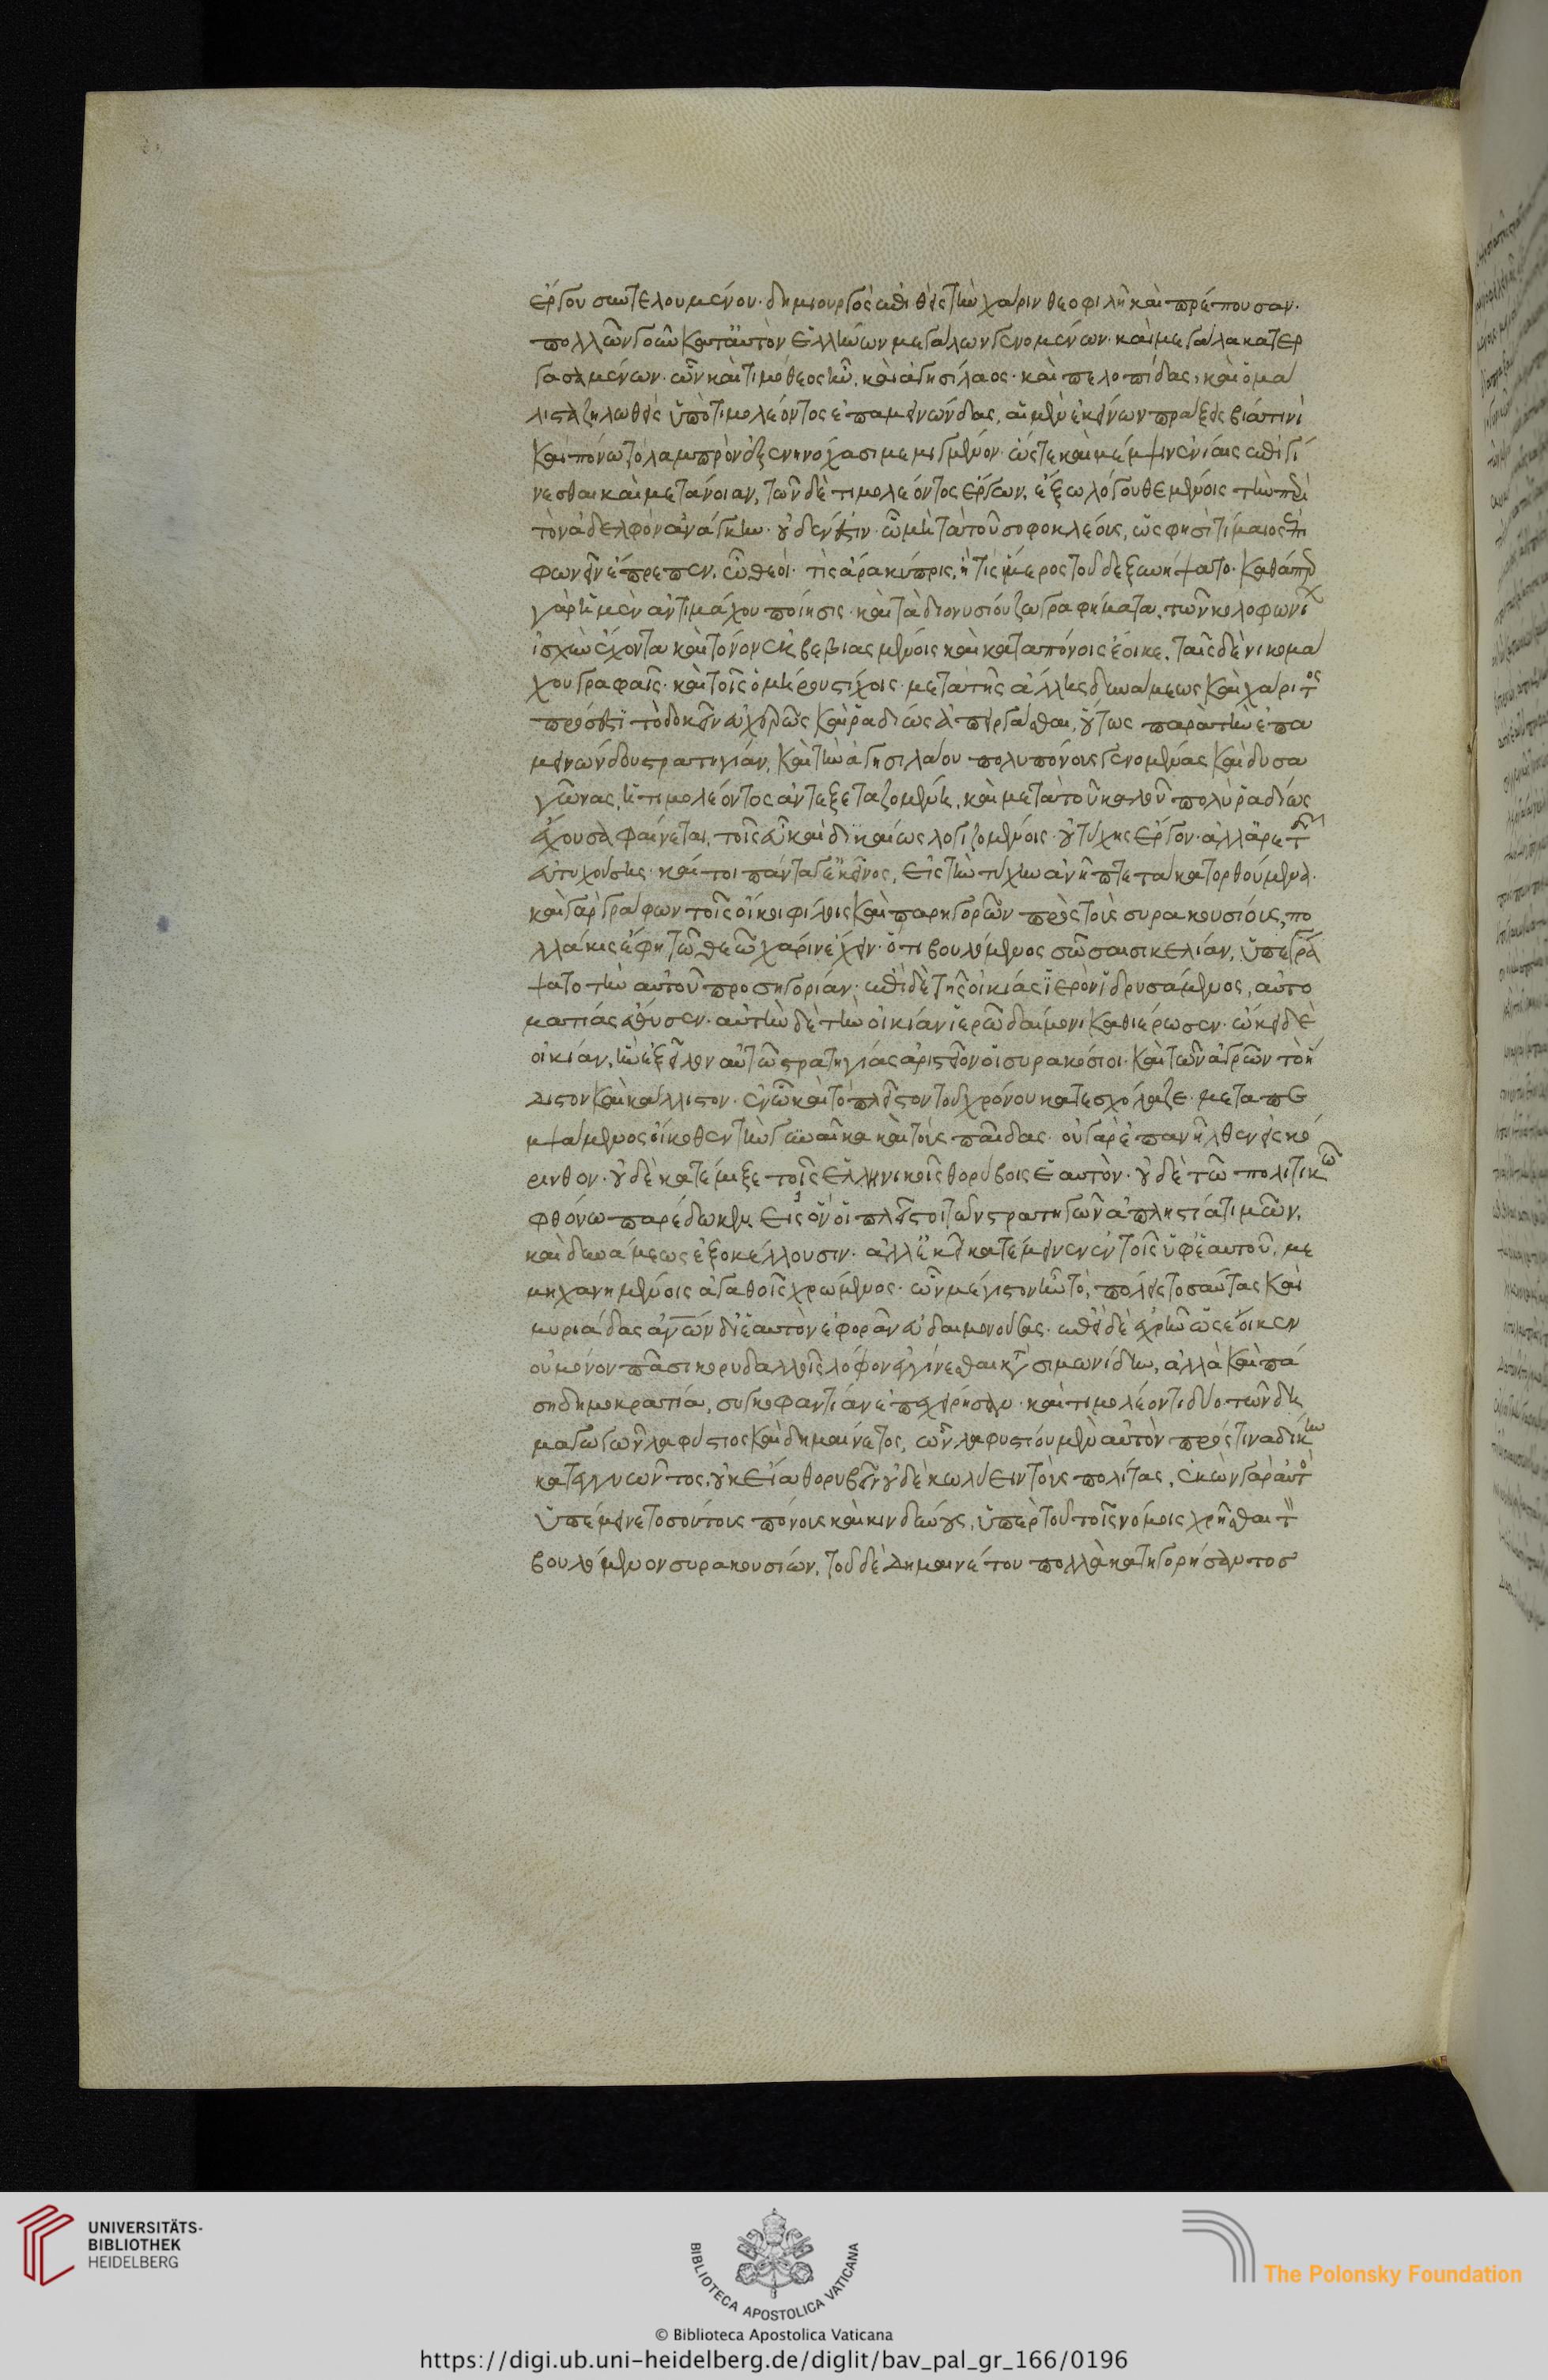 ἔργου συντελουμένου· δημιουργὸς ἐπιθεὶς τὴν χάριν θεοφιλῆ καὶ πρέπουσαν·
πολλῶν γοῦν κατ' αὐτὸν ἑλλήνων μεγάλων γενομένων· καὶ μεγάλα κατερ
γασαμένων· ὧν καὶ τιμόθεος ἦν, καὶ ἀγησίλαος· καὶ πελοπίδας, καὶ ὁ μά
λιστα ζηλωθεὶς ὑπὸ τιμολέοντος ἐπαμεινώνδας, αἱ μὲν ἐκείνων πράξεις βία τινὶ
καὶ πόνω τὸ λαμπρὸν ἐξενηνόχασι μεμιγμένον· ὥστε καὶ μέμψιν ἐνίαις ἐπιγί
νεσθαι καὶ μετάνοιαν, τῶν δὲ τιμολέοντος ἔργων, ἔξω λόγου θεμένοις τὴν περὶ
τὸν ἀδελφὸν ἀνάγκην· οὐδέν ἐστιν· ᾧ μὴ τὰ τοῦ σοφοκλέους, ὥς φησι τίμαιος ἐπι
φωνεῖν ἔπρεπεν, ὦ θεοί· τίς ἄρα κύπρις, ἢ τίς ἵμερος τοῦδε ξυνήψατο· καθάπερ
γὰρ ἡ μὲν ἀντιμάχου ποίησις· καὶ τὰ διονυσίου ζωγραφήματα, τῶν κολοφωνίων
ἰσχὺν ἔχοντα καὶ τόνον ἐκβεβιασμένοις καὶ καταπόνοις ἔοικε, ταῖς δὲ νικομά
χου γραφαῖς· καὶ τοῖς ὁμήρου στίχοις· μετὰ τῆς ἄλλης δυνάμεως καὶ χάριτος
πρόσεστι τὸ δοκεῖν εὐχερῶς καὶ ῥαδίως ἀπειργάσθαι, οὕτως παρὰ τὴν ἐπα
μεινώνδου στρατηγίαν, καὶ τὴν ἀγησιλάου πολυπόνους γενομένας καὶ δυσα
γῶνας, ἡ τιμολέοντος ἀντεξεταζομένη, καὶ μετὰ τοῦ καλοῦ πολὺ ῥαδίως
ἔχουσα φαίνεται, τοῖς εὖ καὶ δικαίως λογιζομένοις· οὐ τύχης ἔργον· ἀλλ' ἀρετῆς
εὐτυχούσης· καίτοι πάντα γ' ἐκεῖνος, εἰς τὴν τύχην ἀνῆπτε τὰ κατορθούμενα·
καὶ γὰρ γράφων τοῖς οἴκοι φίλοις καὶ παρηγορῶν πρὸς τοὺς συρακουσίους, πο
λλάκις ἔφη τῶ θεῶ χάριν ἔχειν· ὅτι βουλόμενος σῶσαι σικελίαν, ὑπεγρά
ψατο τὴν αὐτοῦ προσηγορίαν· ἐπὶ δὲ τῆς οἰκίας ἱερὸν ἱδρυσάμενος, αὐτο
ματίας ἔθυσεν· αὐτὴν δὲ τὴν οἰκίαν ἱερῶ δαίμονι καθιέρωσεν· ὤκει δὲ
οἰκίαν, ἣν ἐξεῖλον αὐτῶ στρατηγίας ἀριστεῖον οἱ συρακόσιοι· καὶ τῶν ἀγρῶν τὸν ἥ
διστον καὶ κάλλιστον· ἐν ᾧ καὶ τὸ πλεῖστον τοῦ χρόνου κατεσχόλαζε· μεταπε
μψάμενος οἴκοθεν τὴν γυναῖκα καὶ τοὺς παῖδας· οὐ γὰρ ἐπανῆλθεν εἰς κό
ρινθον· οὐδὲ κατέμιξε τοῖς ἑλληνικοῖς θορύβοις ἑαυτὸν· οὐδὲ τῶ πολιτικῶ
φθόνω παρέδωκεν, εἰς ὃν οἱ πλεῖστοι τῶν στρατηγῶν ἀπληστία τιμῶν,
καὶ δυνάμεως ἐξοκέλλουσιν· ἀλλ' ἐκεῖ κατέμεινεν ἐν τοῖς ὑφ' ἑαυτοῦ, με
μηχανημένοις ἀγαθοῖς χρώμενος· ὧν μέγιστον ἦν τὸ, πόλεις τοσαύτας καὶ
μυριάδας ἀνων δι' ἑαυτὸν ἐφορᾶν εὐδαιμονούσας· ἐπεὶ δὲ χρῆν ὡς ἔοικεν
οὐ μόνον πᾶσι κορυδαλλοῖς λόφον ἐγγίνεσθαι κατὰ σιμωνίδην, ἀλλὰ καὶ πά
ση δημοκρατία, συκοφαντίαν ἐπεχείρησαν· καὶ τιμολέοντι δύο τῶν δη
μαγωγῶν λαφύστιος καὶ δημαίνετος, ὧν λαφυστίου μὲν αὐτὸν πρός τινα δίκην
κατεγγυῶντος, οὐκ εἴα θορυβεῖν οὐδὲ κωλύειν τοὺς πολίτας, ἑκὼν γὰρ αὐτὸς
ὑπέμεινε τοσούτους πόνους καὶ κινδύνους, ὑπὲρ τοῦ τοῖς νόμοις χρῆσθαι τὸν
βουλόμενον συρακουσίων, τοῦ δὲ δημαινέτου πολλὰ κατηγορήσαντος
UNIVERSITÄTS-
BIBLIOTHEK
HEIDELBERG
BIBLIOTECA APOSTOLICA VATICANA
The Polonsky Foundation
© Biblioteca Apostolica Vaticana
https://digi.ub.uni-heidelberg.de/diglit/bav_pal_gr_166/0196